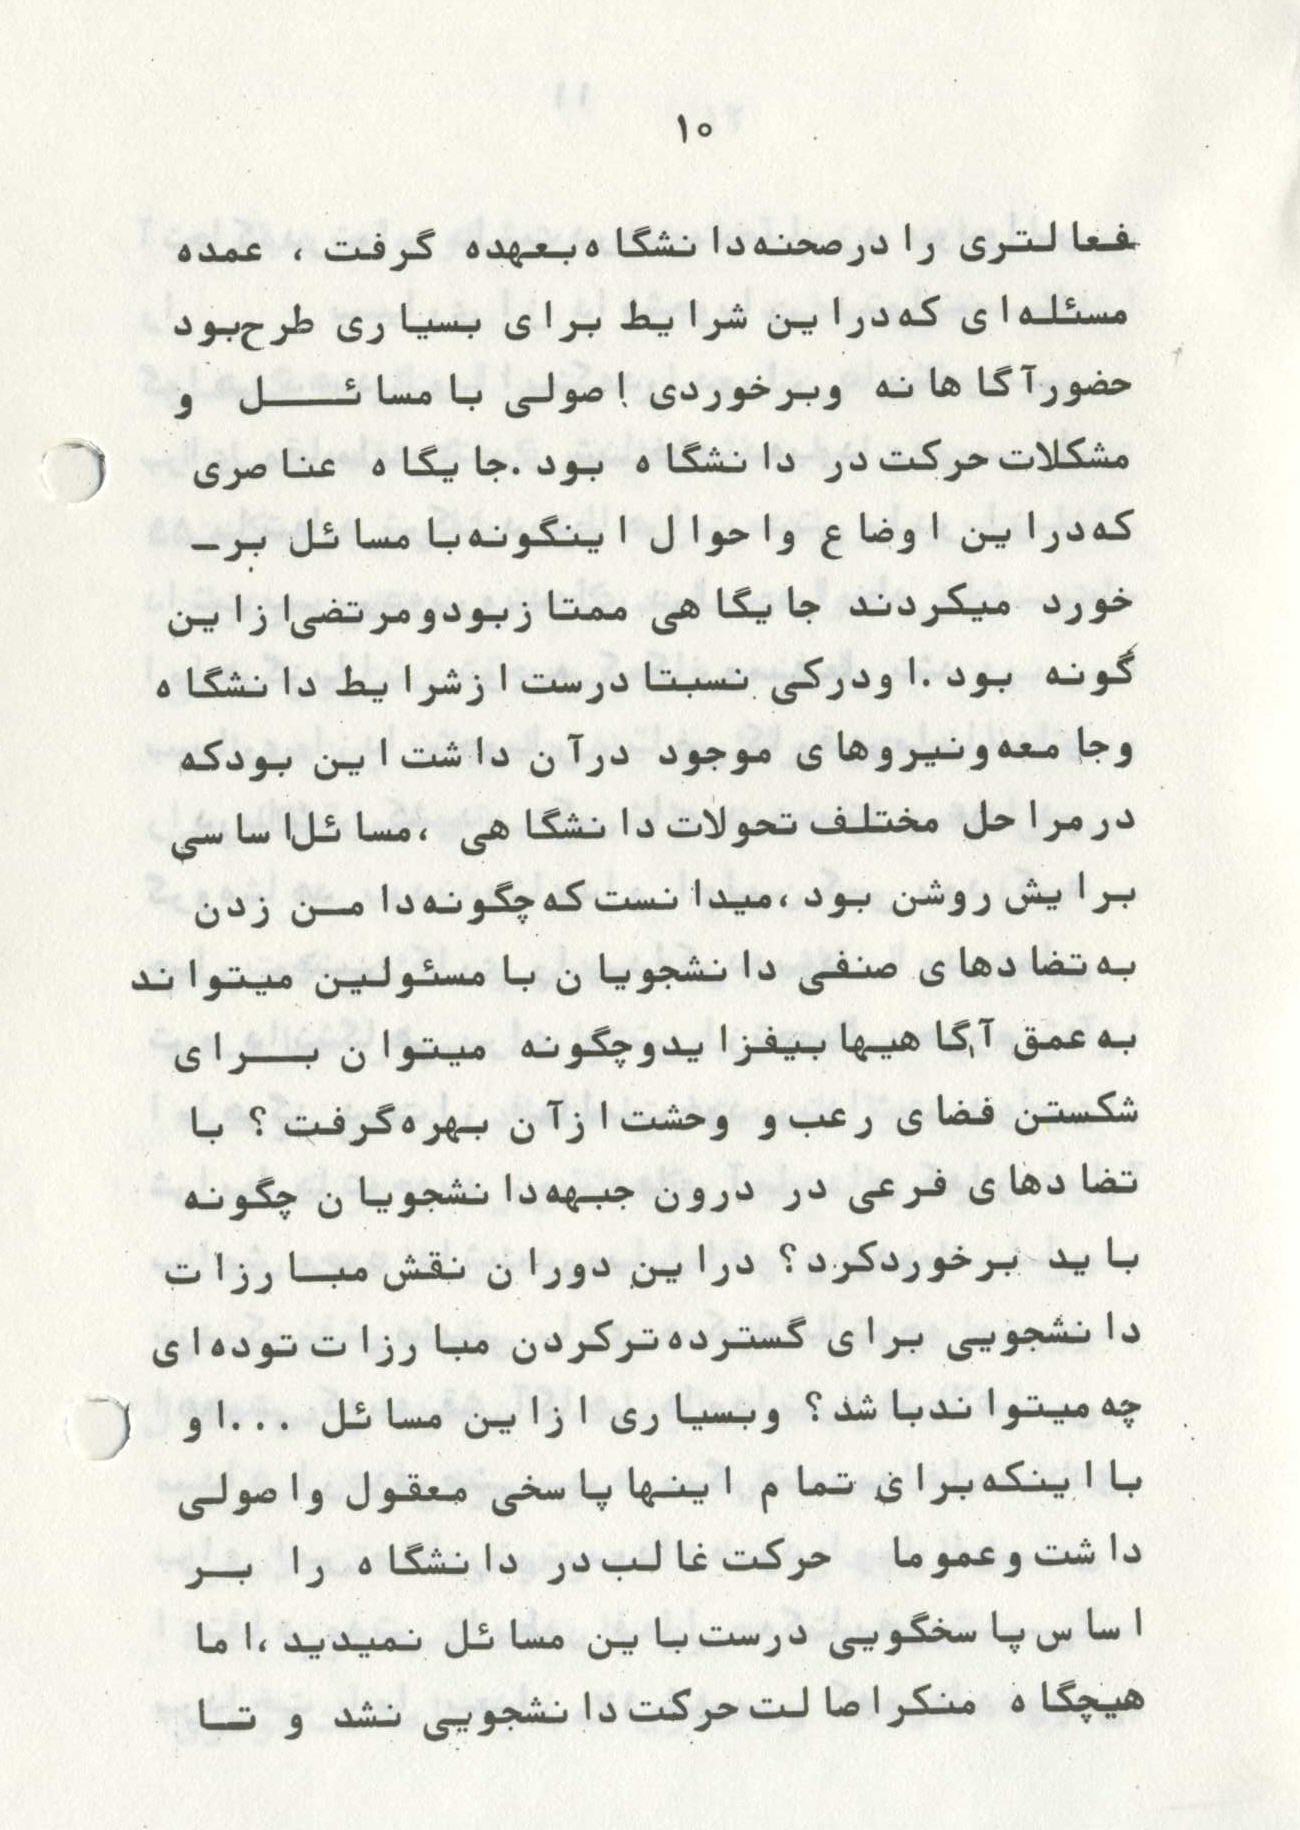 ۱۰
فعالتری را درصحنه دانشگاه بعهده گرفت ، عمده
مسئله‌ای که دراین شرایط برای بسیاری طرح بود
حضورآگاهانه وبرخوردی اصولی با مسائـــل و
مشکلات حرکت در دانشگاه بود.جایگاه عناصری
که دراین اوضاع واحوال اینگونه با مسائل بر-
خورد میکردند جایگاهی ممتاز بود و مرتضی ازاین
گونه بود .اودرکی نسبتا درست ازشرایط دانشگاه
وجامعه ونیروهای موجود درآن داشت این بودکه
درمراحل مختلف تحولات دانشگاهی ،مسائل اساسی
برایش روشن بود ،میدانست که چگونه دامــن زدن
به تضادهای صنفی دانشجویان با مسئولین میتواند
به عمق آگاهیها بیفزاید وچگونه میتوان بـــرای
شکستن فضای رعب و وحشت ازآن بهره گرفت ؟ با
تضادهای فرعی در درون جبهه دانشجویان چگونه
باید برخوردکرد؟ دراین دوران نقش مبــارزات
دانشجویی برای گسترده ترکردن مبارزات توده‌ای
چه میتواندباشد؟ وبسیاری ازاین مسائل ...او
بااینکه برای تمام اینها پاسخی معقول واصولی
داشت وعموما حرکت غالب در دانشگاه را بــر
اساس پاسخگویی درست باین مسائل نمیدید ،اما
هیچگاه منکراصالت حرکت دانشجویی نشد و تــا